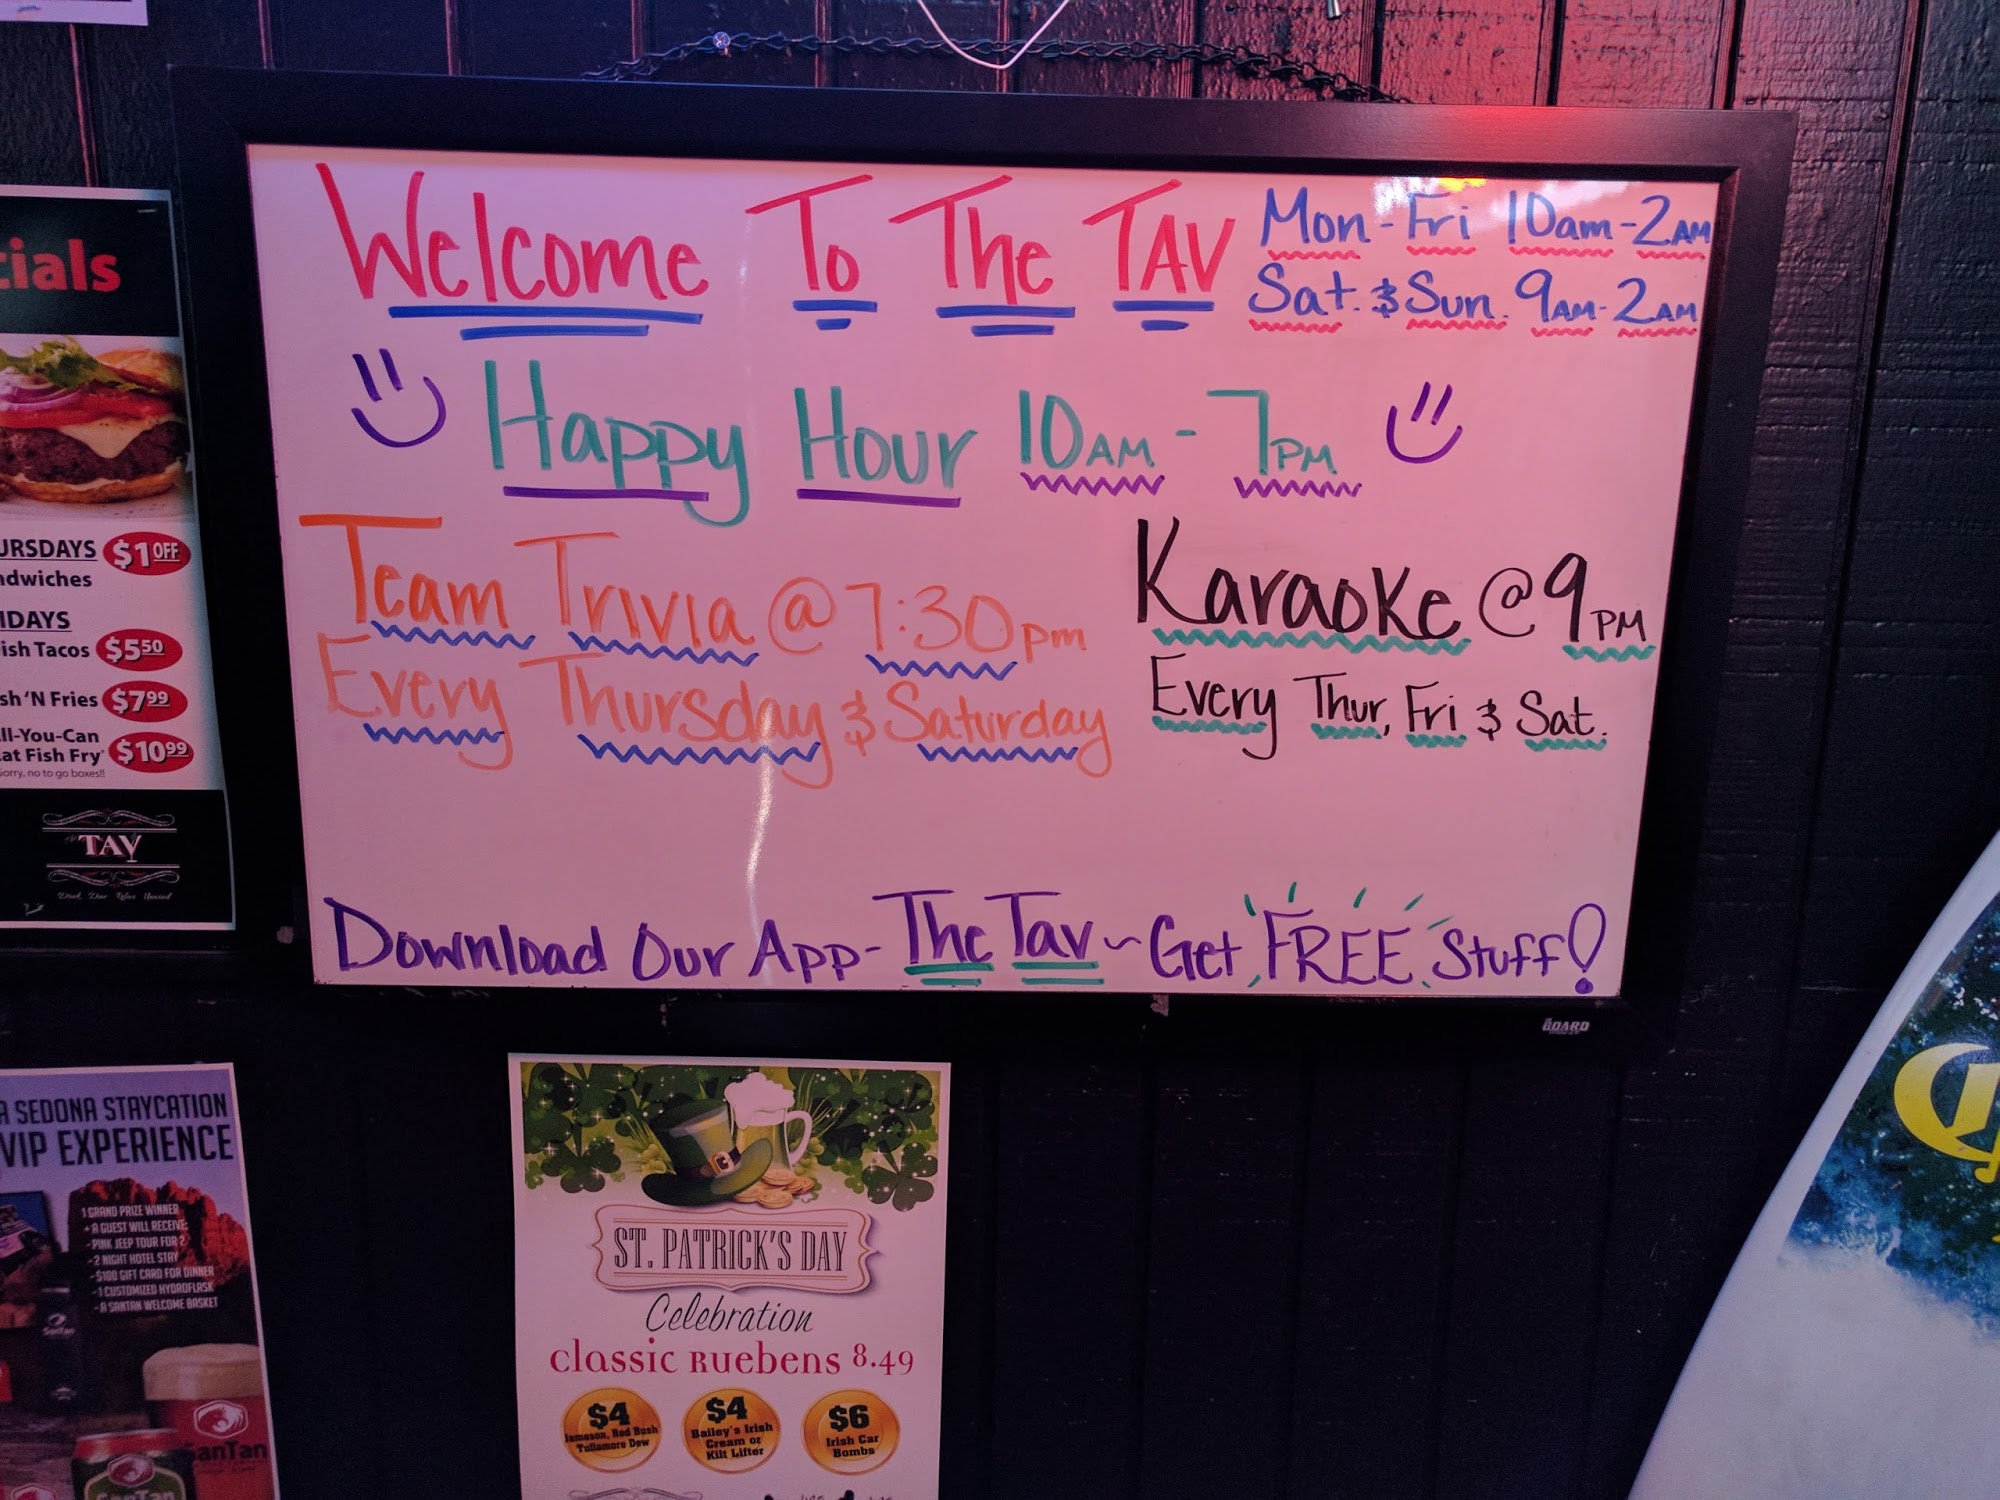 Welcome To The TAV
Mon-Fri 10am-2AM
Sat. & Sun. 9AM-2AM
Happy Hour 10AM - 7PM
Team Trivia @ 7:30pm
Every Thursday & Saturday
Karaoke @ 9PM
Every Thur, Fri & Sat.
Download Our App - The Tav ~ Get FREE Stuff!
BOARD
cials
URSDAYS $1 OFF
ndwiches
IDAYS
ish Tacos $5.50
sh 'N Fries $7.99
ll-You-Can
at Fish Fry $10.99
Sorry, no to go boxes!!
the
TAV
Drink Dine Relax Unwind
A SEDONA STAYCATION
VIP EXPERIENCE
1 GRAND PRIZE WINNER
+ A GUEST WILL RECEIVE:
- PINK JEEP TOUR FOR 2
- 2 NIGHT HOTEL STAY
- $100 GIFT CARD FOR DINNER
- 1 CUSTOMIZED HYDROFLASK
- A SANTAN WELCOME BASKET
SanTan
SanTan
SanTan
ST. PATRICK'S DAY
Celebration
classic Ruebens 8.49
$4
Jameson, Red Bush
Tullamore Dew
$4
Bailey's Irish
Cream or
Kilt Lifter
$6
Irish Car
Bombs